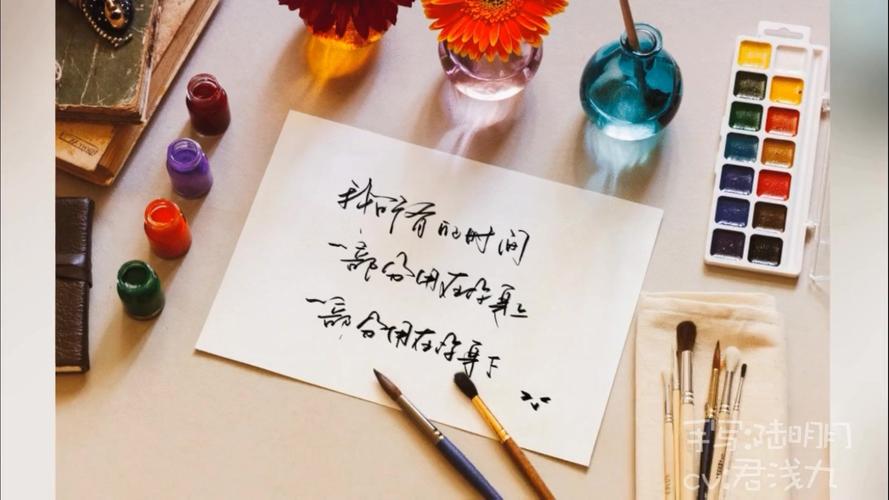 我所有的时间
一部分用在你身上
一部分用在你身下
手写:陆明明
cv.君浅九